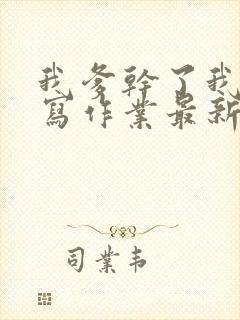 我爹幹了我
寫作業最新
司業韋